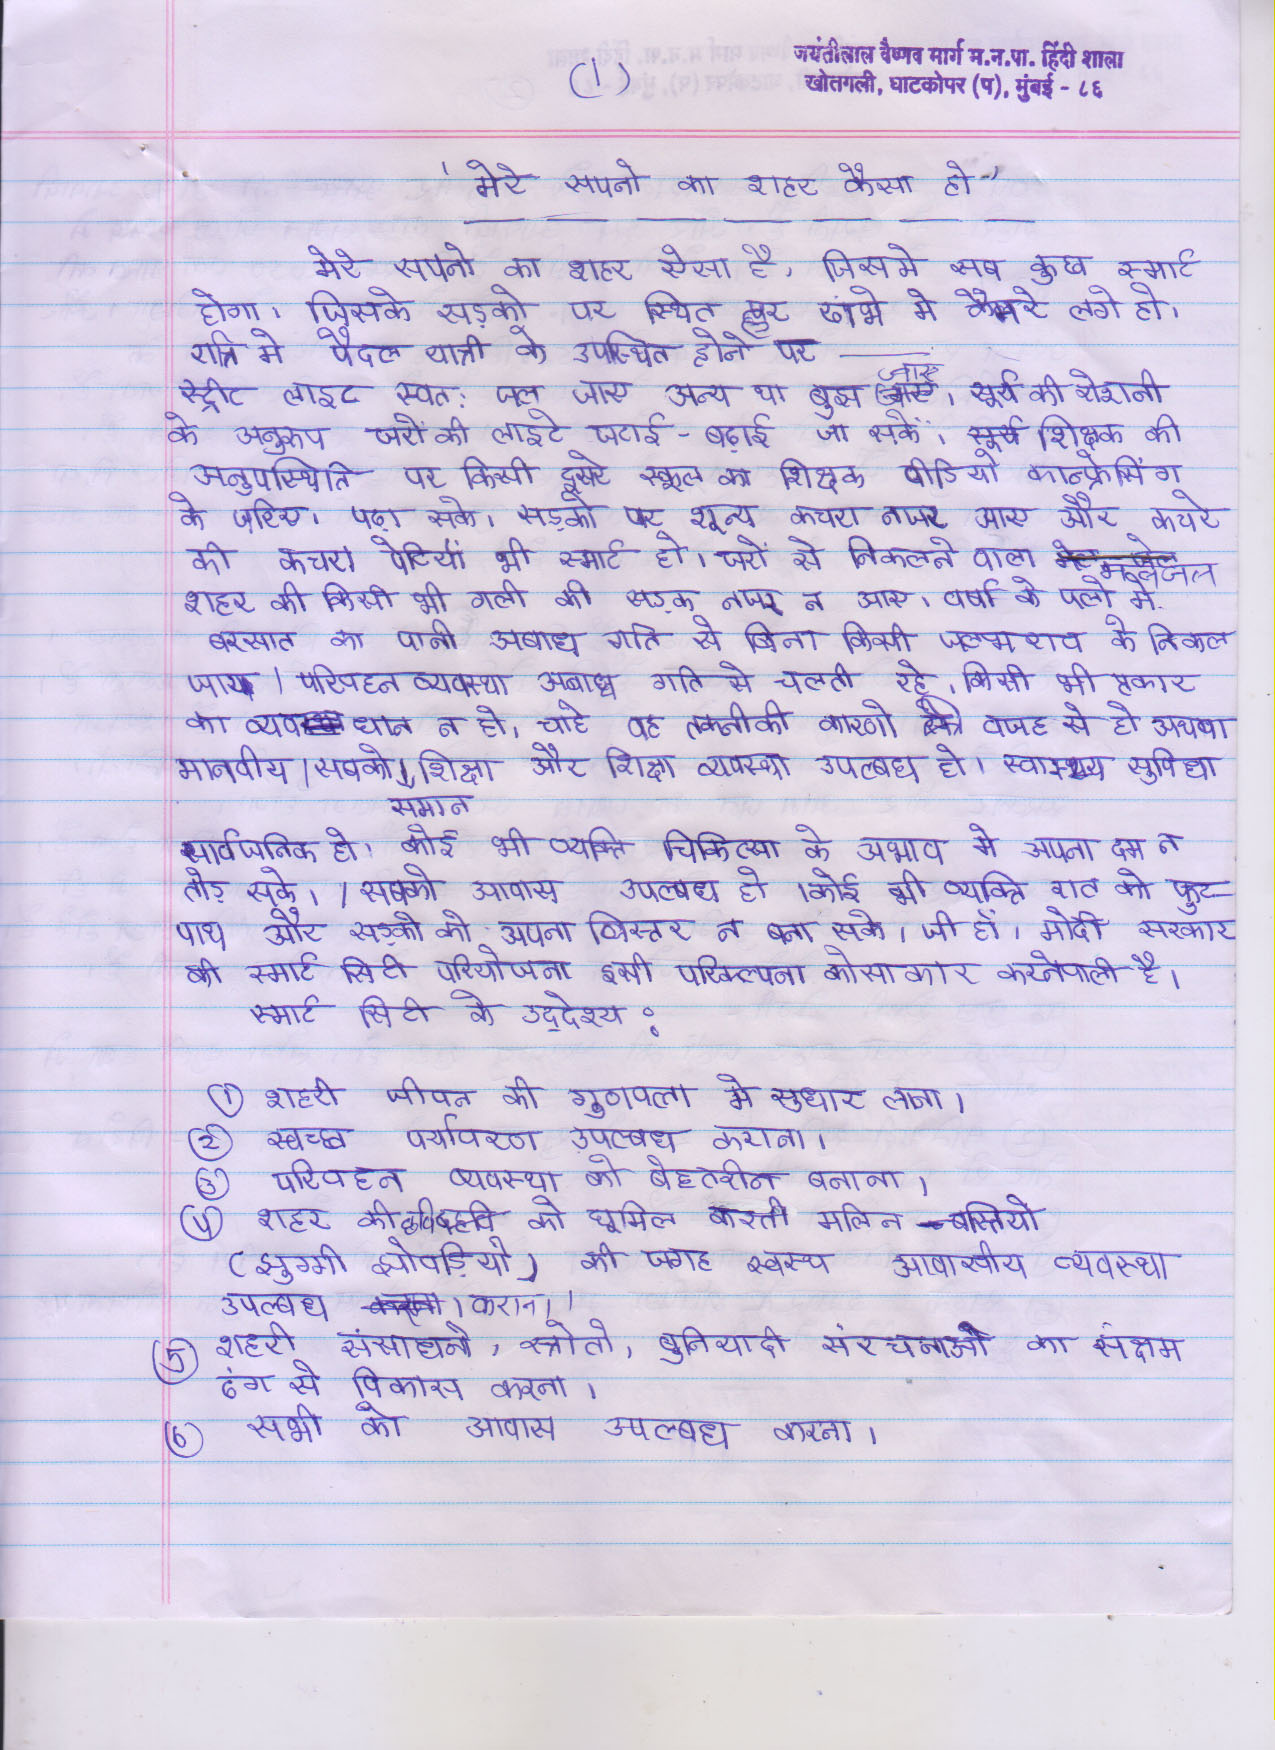 जयंतीलाल वैष्णव मार्ग म.न.पा. हिंदी शाला
खोतगली, घाटकोपर (प), मुंबई - ८६
(1)
'मेरे सपनो का शहर कैसा हो"
मेरे सपनो का शहर ऐसा है, जिसमे सब कुछ स्मार्ट
होगा। जिसके सड़को पर स्थित हर खंभे मे कैमरे लगे हो।
रात्रि मे पैदल यात्री के उपस्थित होने पर
जाए
स्ट्रीट लाइट स्वत: जल जाए अन्य था बुझ जाए, सूर्य की रोशनी
के अनुरूप घरों की लाइटे घटाई - बढ़ाई जा सकें। सूर्य शिक्षक की
अनुपस्थिति पर किसी दूसरे स्कूल का शिक्षक वीडियो कान्फ्रेसिंग
के जरिए। पढ़ा सके। सड़को पर शून्य कचरा नजर आए और कचरे
की कचरा पेटियां भी स्मार्ट हो। घरों से निकलने वाला मलजल
शहर की किसी भी गली की सड़क नजर न आए। वर्षा के पलो मे
बरसात का पानी अबाध गति से बिना किसी जलभराव के निकल
जाय। परिवहन व्यवस्था अबाध गति से चलती रहे, किसी भी प्रकार
का व्यवधान न हो, चाहे वह तकनीकी कारणो की वजह से हो अथवा
मानवीय। सबको शिक्षा और शिक्षा व्यवस्था उपल्बध हो। स्वास्थ्य सुविधा
समान
सार्वजनिक हो। कोई भी व्यक्ति चिकित्सा के अभाव मे अपना दम न
तोड़ सके। / सबको आवास उपल्बध हो। कोई भी व्यक्ति रात को फुट-
पाथ और सड़को को अपना बिस्तर न बना सके। जी हाँ। मोदी सरकार
की स्मार्ट सिटी परियोजना इसी परिकल्पना को साकार करनेवाली है।
स्मार्ट सिटी के उद्देश्य :
① शहरी जीवन की गुणवत्ता मे सुधार लाना।
② स्वच्छ पर्यावरण उपल्बध कराना।
③ परिवहन व्यवस्था को बेहतरीन बनाना।
④ शहर की छवि को धूमिल करती मलिन बस्तियो
(झुग्गी झोपड़ियो) की जगह स्वस्थ आवासीय व्यवस्था
उपल्बध कराना।
⑤ शहरी संसाधनो, स्त्रोतो, बुनियादी संरचनाओ का सक्षम
ढंग से विकास करना।
⑥ सभी को आवास उपल्बध करना।